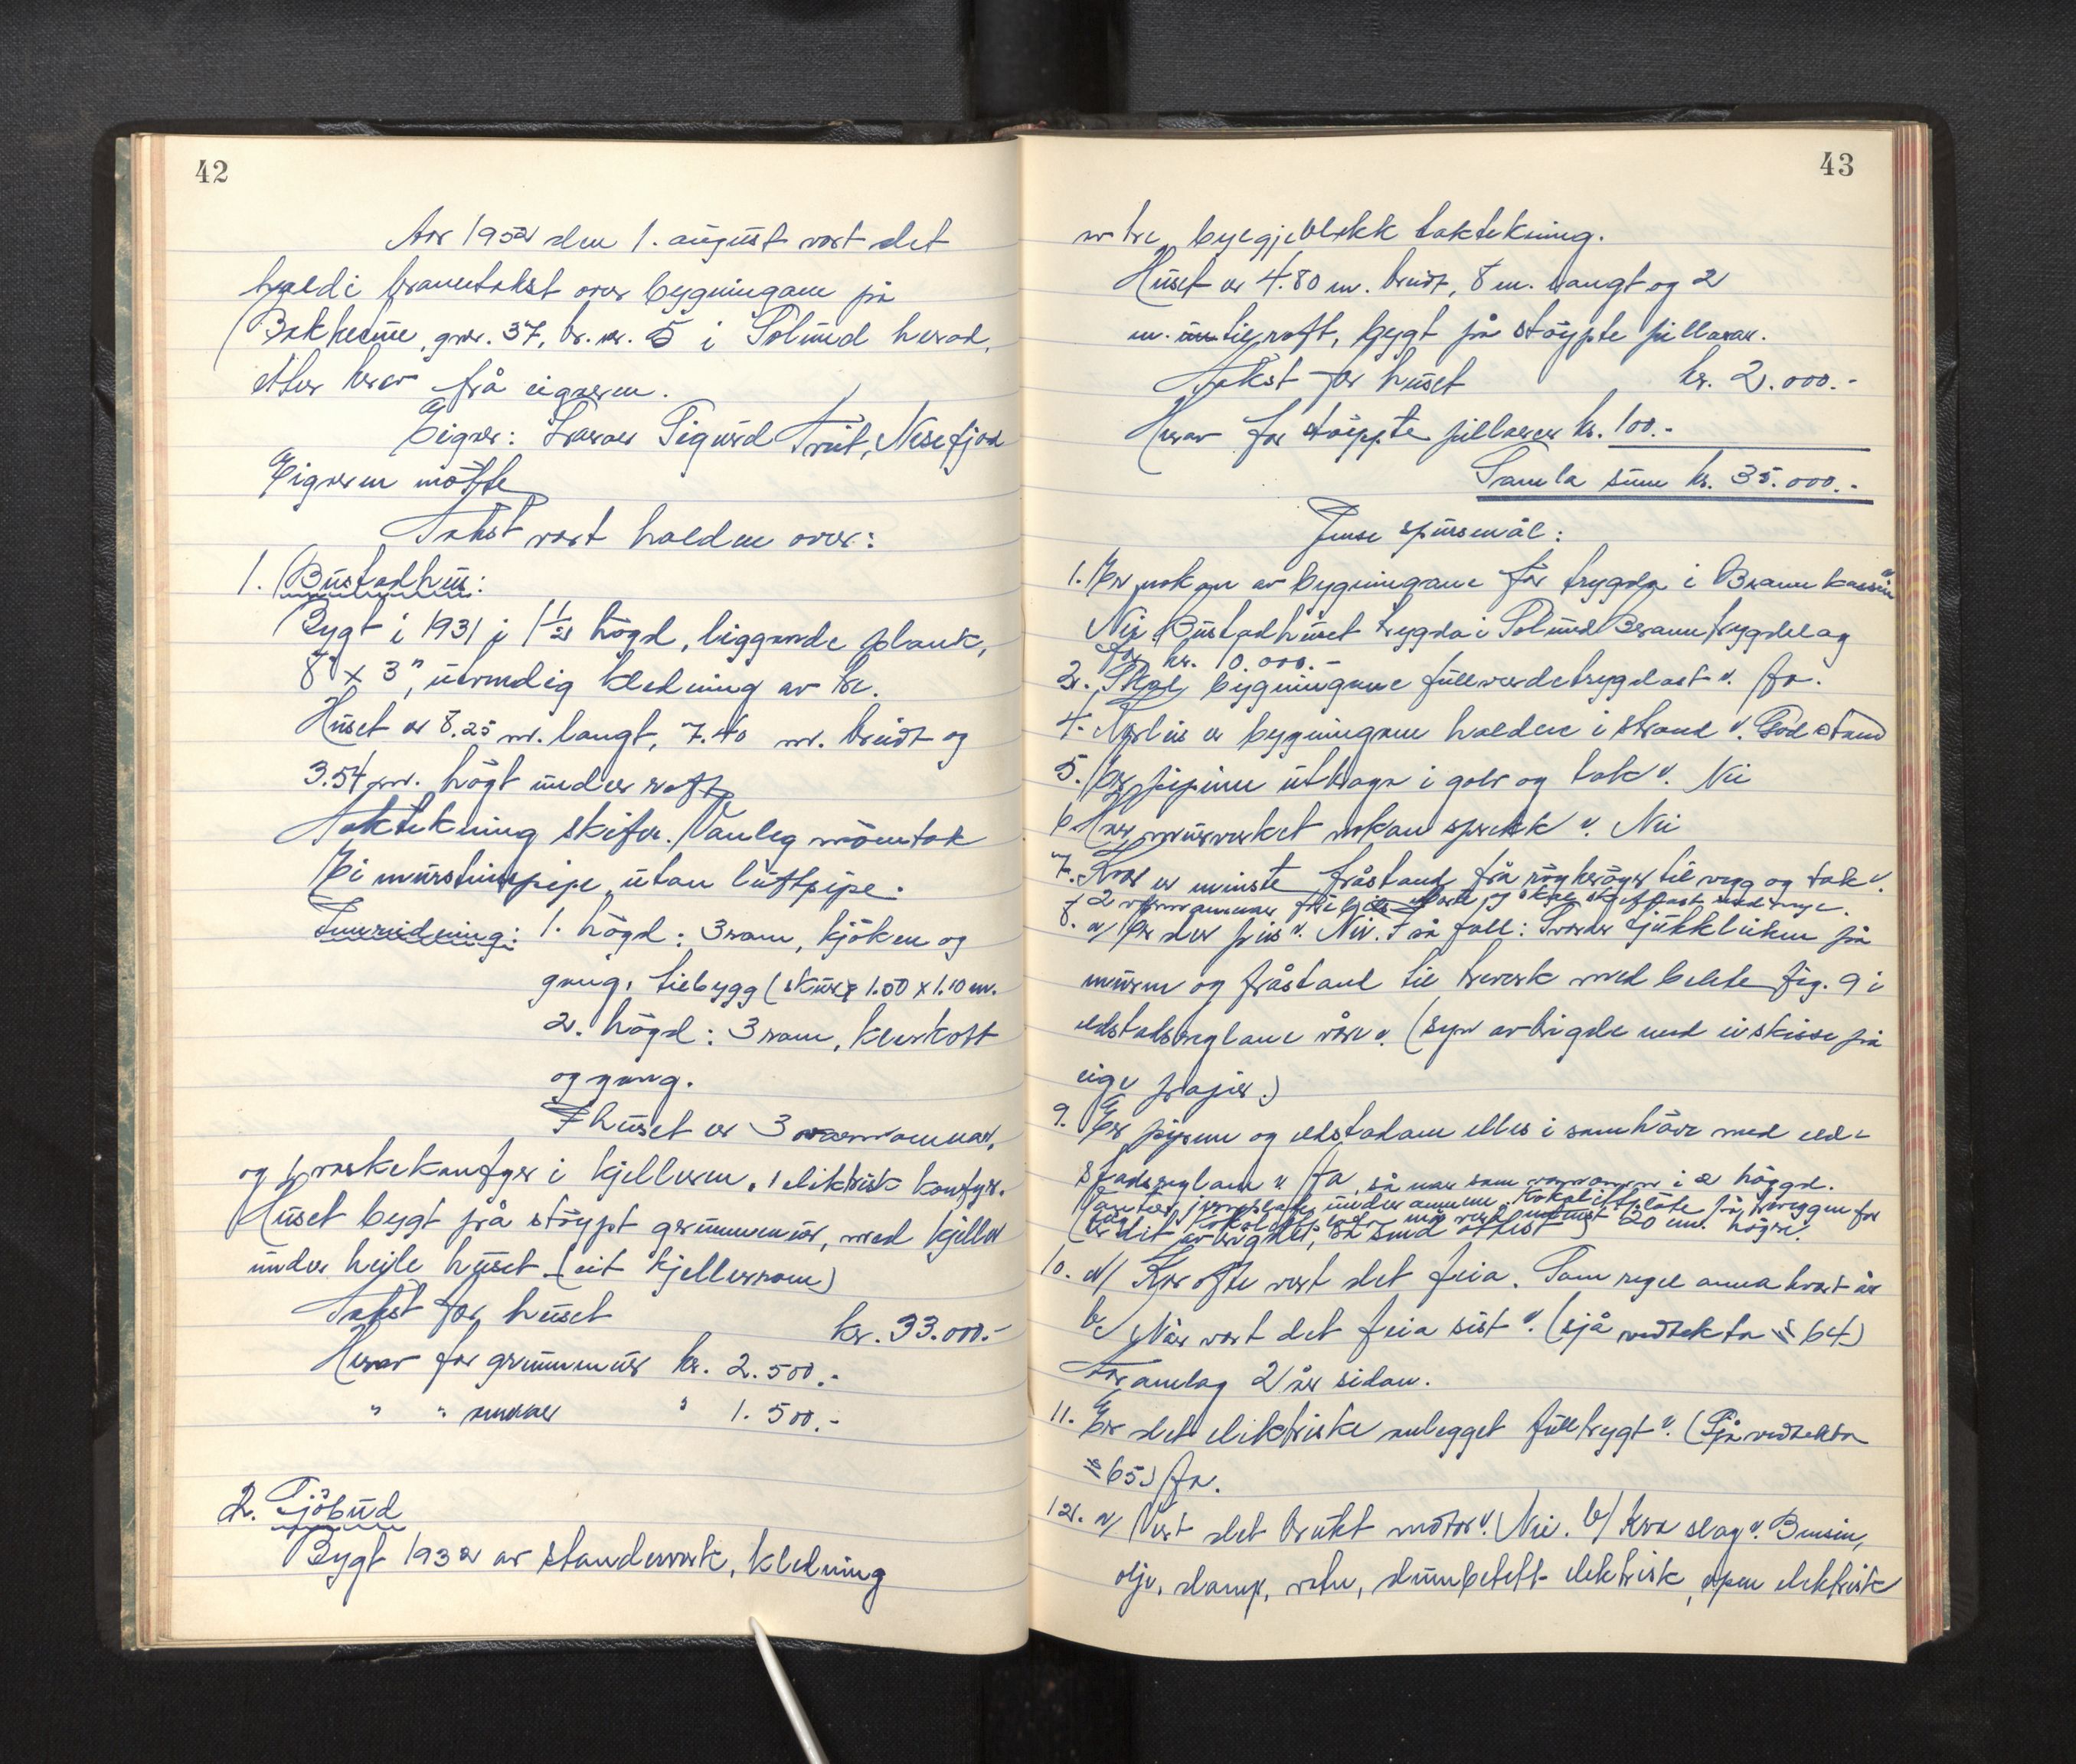 42
Aar 1952 den 1. august vart det
haldi branntakst over bygningane på
Bakkeime, gnr. 37, br. nr. 5 i Solund herad,
etter krav frå eigaren.
Eigar: Sigurd Nesefjord
Eigaren møtte
Takst vart halden over:
1. Bustadhus:
Bygt i 1931 i 1 1/2 högd, liggande plank,
8" x 3", utvendig kledning av tre.
Huset er 8.25 m. langt, 7.40 m. breidt og
3.54 m. högt under raft
Taktekning skifer. Vanleg mönetak
Ei mursteinspipe, utan luftpipe.
Innreidning: 1. högd: 3 rom, kjöken og
gang, tilbygg (skur) 1.50 x 1.10 m.
2. högd: 3 rom, kleskott
og gang.
I huset er 3 omnar,
og 1 vaskekomfyr i kjelleren. 1 elektrisk komfyr.
Huset bygt på stöypt grunnmur, med kjeller
under heile huset (eit kjellerrom)
Takst for huset kr. 33.000.-
Herav for grunnmur kr. 2.500.-
" " " 1.500.-
2. Sjöbud
Bygt 1932 av standerverk, kledning
43
av tre, bylgjeblekk taktekning.
Huset er 4.80 m. breidt, 8 m. langt og 2
m. til raft, bygt på stöypte pillarar.
Takst for huset kr. 2.000.-
Herav for stöypte pillarer kr. 100.-
Samla sum kr. 35.000.-
Ymse spursmål:
1. Er nokon av bygningane för trygda i Brannkassa
Nei Bustadhuset trygda i Solund Branntrygdelag
for kr. 10.000.-
2. Skal bygningane fullverdetrygdast? Ja.
4. Korleis er bygningane haldne i stand? God stand
5. Er pipene utkraga i golv og tak? Nei
6. Har murverket nokon sprekk? Nei
7. Kvar er minste fråstand frå röykröyr til vegg og tak?
8. a/ Er der peis? Nei. I så fall: Svarar sjukkleiken på
muren og fråstand til treverk med bilete fig. 9 i
eldstadsreglane våre? (Syn avbrigde med ei skisse på
eige papir.)
9. Er pipene og eldstadane elles i samhöve med eld-
stadsreglane? Ja, så nær som i 2 höggd.
Vantar jernplate under omnene. på treveggen for
20 cm. högre.
10. a/ Kor ofte vert det feia. Som regel anna kvart år
b/ Når vart det feia sist? (sjå vedtekta § 64)
For omlag 2 år sidan.
11. Er det elektriske anlegget fulltrygt? (Sjå vedtekta
§ 65) Ja.
12. a/ Vert det brukt motor? Nei. b/ Kva slag? Bensin,
olje, damp, vatn, elektrisk, open elektrisk